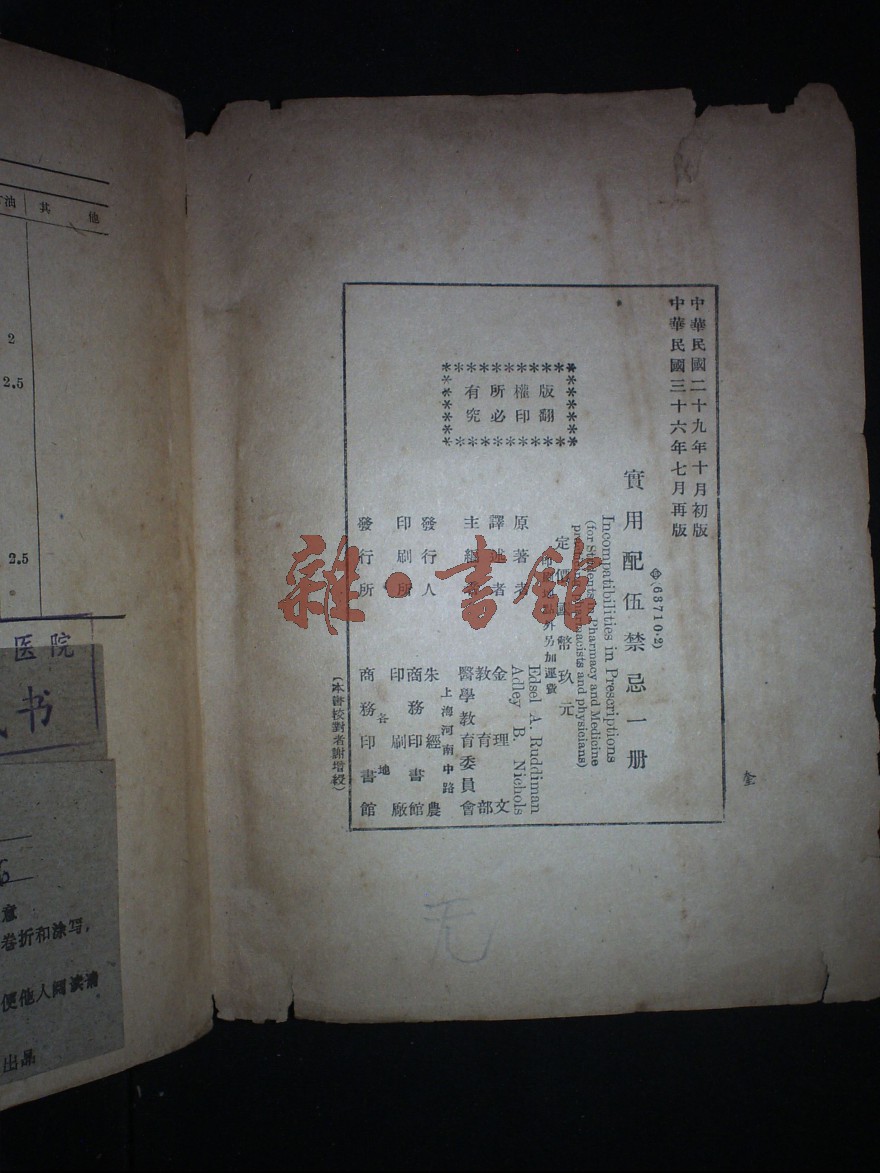 中華民國二十九年十月初版
中華民國三十六年七月再版
(63710·2)
實用配伍禁忌一册
Incompatibilities in Prescriptions
(for Students in Pharmacy and Medicine
pharmacists and physicians)
定價國幣玖元
外另加運費
原著者 Edsel A. Ruddiman
Adley B. Nichols
譯述者 金理文
主編者 教育部
醫學教育委員會
發行人 朱經農
上海河南中路
印刷所 商務印書館
印刷廠
發行所 商務印書館
各地
(本書校對者謝增綬)
版權所有
翻印必究
雜·書館
无
油
其他
2
2.5
2.5
医院
书
意
卷折和涂写,
便他人阅读清
出品